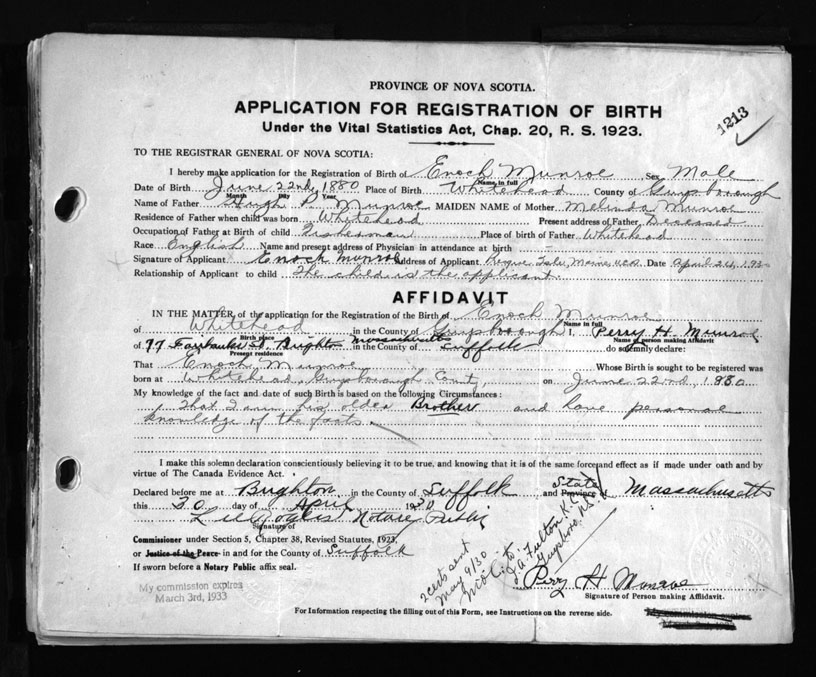 PROVINCE OF NOVA SCOTIA.
APPLICATION FOR REGISTRATION OF BIRTH
Under the Vital Statistics Act, Chap. 20, R. S. 1923.
1213
TO THE REGISTRAR GENERAL OF NOVA SCOTIA:
I hereby make application for the Registration of Birth of Enoch Munroe Sex Male
Name in full
Date of Birth June 22nd, 1880 Place of Birth Whitehead County of Guysborough
Month Day Year
Name of Father Hugh P. Munroe MAIDEN NAME of Mother Melinda Munroe
Residence of Father when child was born Whitehead Present address of Father Deceased
Occupation of Father at Birth of child Fisherman Place of birth of Father Whitehead
Race English Name and present address of Physician in attendance at birth —
Signature of Applicant Enoch Munroe Address of Applicant Isle, Maine, Date April 24, 1930
Relationship of Applicant to child The child is the applicant
AFFIDAVIT
IN THE MATTER, of the application for the Registration of the Birth of Enoch Munroe
Name in full
of Whitehead in the County of Guysborough I, Perry H. Munroe
Birth place Name of person making Affidavit
of 77 Fairbanks St. Brighton Massachusetts in the County of Suffolk do solemnly declare:
Present residence
That Enoch Munroe Whose Birth is sought to be registered was
born at Whitehead, Guysborough County, on June 22nd, 1880
My knowledge of the fact and date of such Birth is based on the following Circumstances:
That I am his older Brother and have personal
knowledge of the facts.
I make this solemn declaration conscientiously believing it to be true, and knowing that it is of the same force and effect as if made under oath and by
virtue of The Canada Evidence Act.
Declared before me at Brighton in the County of Suffolk and Province of State Massachusetts
this 30 day of April 1930
Notary Public
Signature of
Commissioner under Section 5, Chapter 38, Revised Statutes, 1923,
or Justice of the Peace in and for the County of Suffolk
If sworn before a Notary Public affix seal.
My commission expires
March 3rd, 1933
2 certs sent
May 9/30
to
J A Fulton K.C.
Guysboro, N.S.
Perry H Munroe
Signature of Person making Affidavit.
For Information respecting the filling out of this Form, see Instructions on the reverse side.